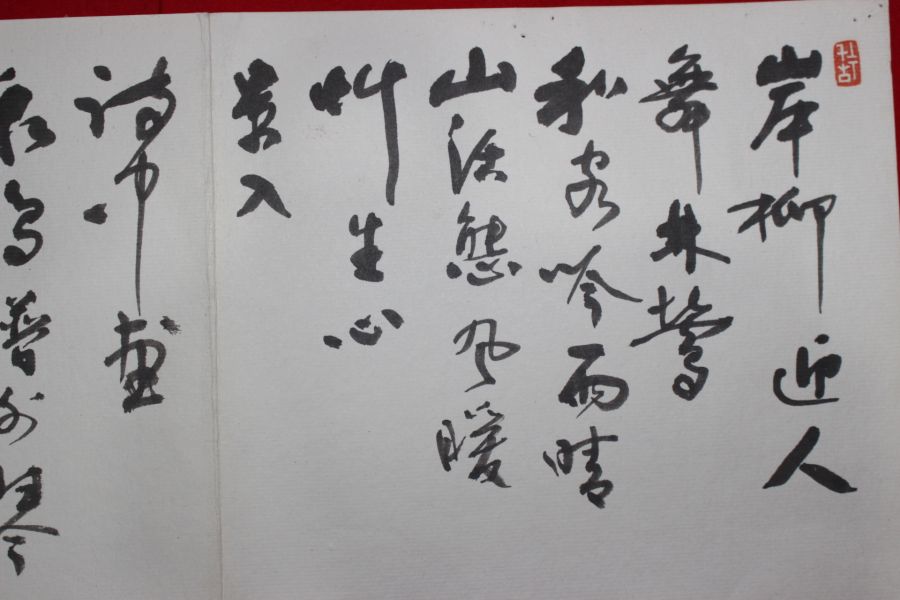 岸柳迎人
舞林鶯
和客吟雨晴
山活態風暖
艸生心
景入
詩中畫